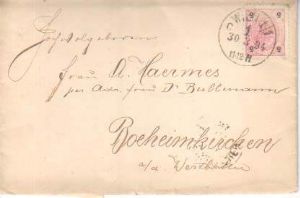 Hochwolgeboren
Frau A. Haermes
per Adr. Frau Dr Bullmann
Boeheimkirchen
a/d. Westbahn
WIEN
30 94